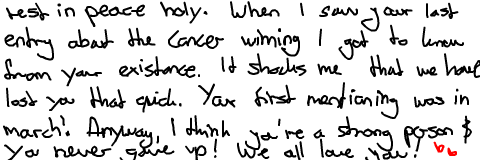 rest in peace holy. When I saw your last
entry about the cancer winning I got to know
from your existance. It shocks me that we have
lost you that quick. Your first mentioning was in
march! Anyway, I think you're a strong person &
You never gave up! We all love you!